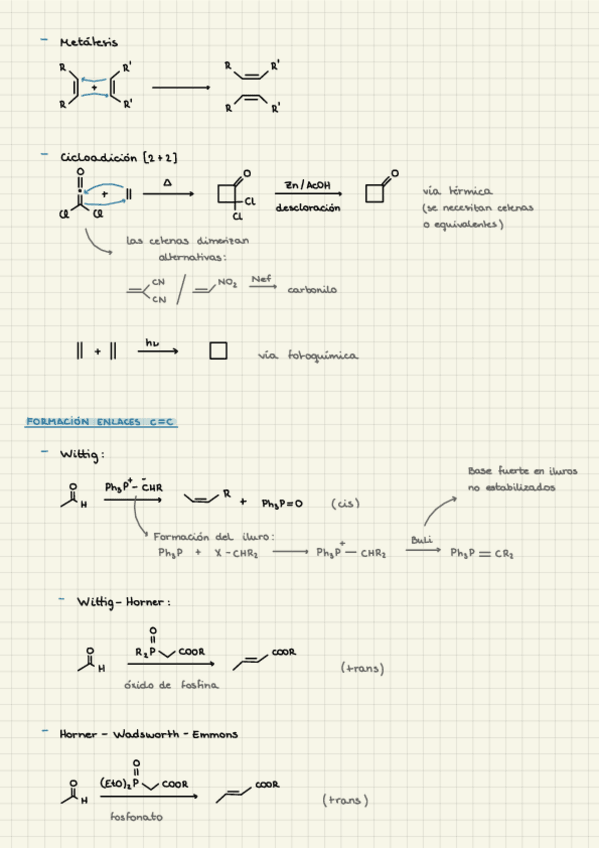 - Metátesis
R R' R R'
+
R R' R R'
- Cicloadición [2+2]
O O O
+ Δ Cl Zn/AcOH vía térmica
Cl Cl Cl descloración (se necesitan cetenas
o equivalentes)
las cetenas dimerizan
alternativas:
CN / NO2 Nef carbonilo
CN
+ hν vía fotoquímica
FORMACIÓN ENLACES C=C
- Wittig:
Base fuerte en iluros
no estabilizados
O H Ph3P+-C̄HR R + Ph3P=O (cis)
Formación del iluro:
Ph3P + X-CHR2 Ph3P+—CHR2 BuLi Ph3P=CR2
- Wittig-Horner:
O
O H R2P COOR COOR (trans)
óxido de fosfina
- Horner - Wadsworth - Emmons
O
O H (EtO)2P COOR COOR (trans)
fosfonato